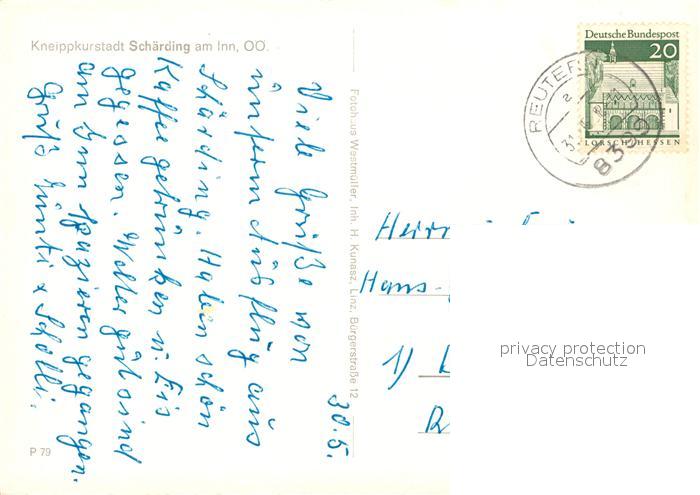 Kneippkurstadt Schärding am Inn, OÖ.
30.5.
Viele Grüße von
unserem Ausflug aus
Schärding. Haben schön
Kaffee getrunken u. Eis
gegessen. Wetter gut sind
am Inn spazieren gegangen.
Gruß
P 79
Fotohaus Westmüller, Inh. H. Kunasz, Linz, Bürgerstraße 12
Deutsche Bundespost
20
LORSCH/HESSEN
REUTER
8399
Herr
Hans-
1)
privacy protection
Datenschutz